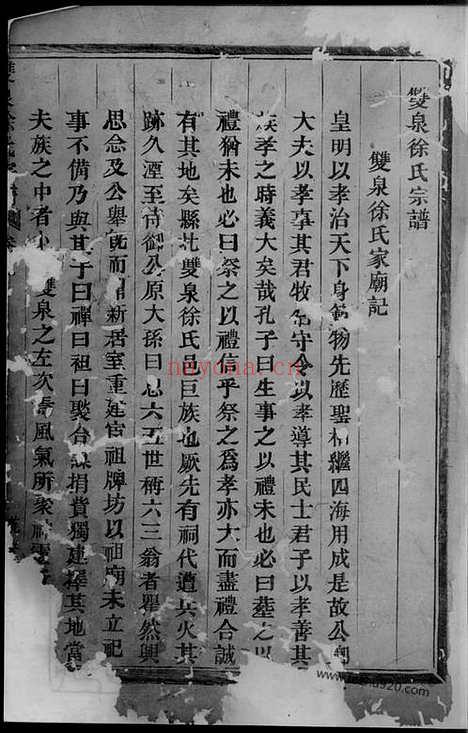 雙泉徐氏宗譜
雙泉徐氏家廟記
皇明以孝治天下身範物先歷聖相繼四海用成是故公
大夫以孝享其君牧守令以孝導其民士君子以孝善其
族孝之時義大矣哉孔子曰生事之以禮未也必曰塟之以
禮猶未也必曰祭之以禮信乎祭之爲孝亦大而盡禮合誠
有其地矣縣北雙泉徐氏吕巨族也厥先有祠代遭兵火其
跡久湮至侍御公原大孫曰思六五世柄六三翁者瞿然興
思念及公舉既而新居室重建宦祖牌坊以祖廟未立祀
事不備乃與其子曰禪曰祖曰聚台謀捐貲獨建擇其地當
夫族之中者 雙泉之左次 風氣所聚
nayona.cn
920.com